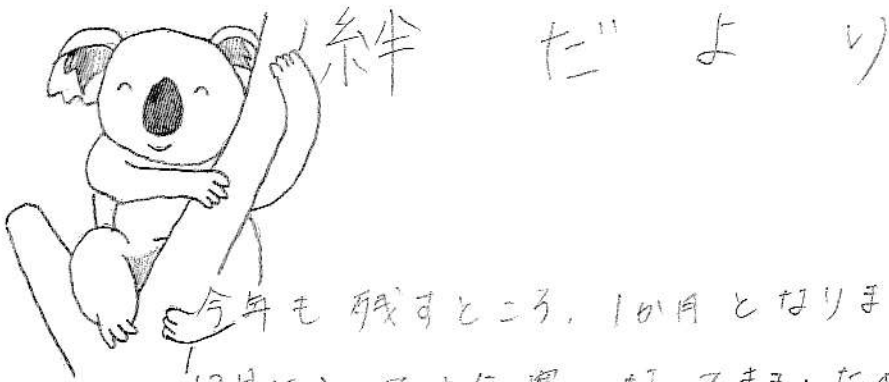 絆だより
今年も残すところ、1か月となりま
12月に